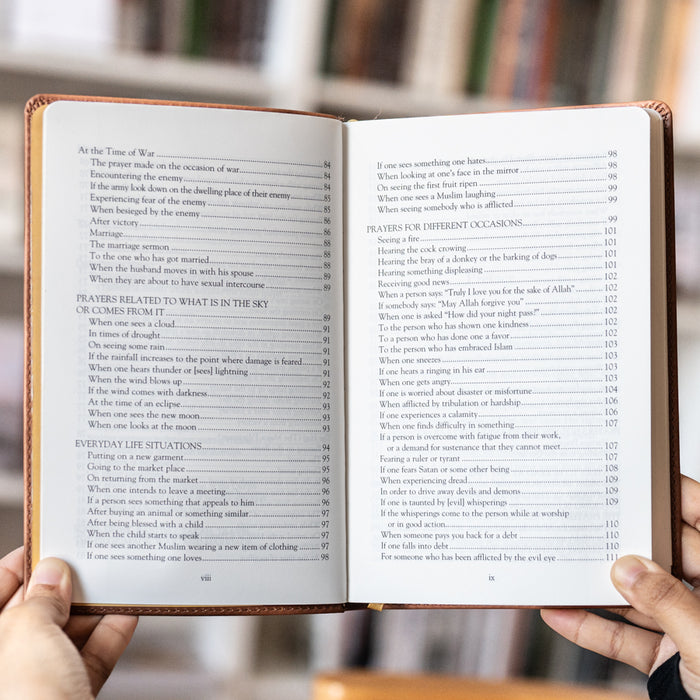 At the Time of War 84
The prayer made on the occasion of war 84
Encountering the enemy 84
If the army look down on the dwelling place of their enemy 85
Experiencing fear of the enemy 85
When besieged by the enemy 86
After victory 86
Marriage 86
The marriage sermon 88
To the one who has got married 88
When the husband moves in with his spouse 88
When they are about to have sexual intercourse 89
PRAYERS RELATED TO WHAT IS IN THE SKY
OR COMES FROM IT 89
When one sees a cloud 91
In times of drought 91
On seeing some rain 91
If the rainfall increases to the point where damage is feared 91
When one hears thunder or [sees] lightning 91
When the wind blows up 92
If the wind comes with darkness 92
At the time of an eclipse 92
When one sees the new moon 93
When one looks at the moon 93
EVERYDAY LIFE SITUATIONS 94
Putting on a new garment 95
Going to the market place 95
On returning from the market 96
When one intends to leave a meeting 96
If a person sees something that appeals to him 96
After buying an animal or something similar 97
After being blessed with a child 97
When the child starts to speak 97
If one sees another Muslim wearing a new item of clothing 97
If one sees something one loves 98
viii
If one sees something one hates 98
When looking at one's face in the mirror 98
On seeing the first fruit ripen 98
When one sees a Muslim laughing 99
When seeing somebody who is afflicted 99
PRAYERS FOR DIFFERENT OCCASIONS 99
Seeing a fire 101
Hearing the cock crowing 101
Hearing the bray of a donkey or the barking of dogs 101
Hearing something displeasing 101
Receiving good news 102
When a person says: "Truly I love you for the sake of Allah" 102
If somebody says: "May Allah forgive you" 102
When one is asked "How did your night pass?" 102
To the person who has shown one kindness 102
To a person who has done one a favor 102
To the person who has embraced Islam 102
When one sneezes 103
If one hears a ringing in his ear 103
When one gets angry 103
If one is worried about disaster or misfortune 104
When afflicted by tribulation or hardship 106
If one experiences a calamity 106
When one finds difficulty in something 107
If a person is overcome with fatigue from their work,
or a demand for sustenance that they cannot meet 107
Fearing a ruler or tyrant 107
If one fears Satan or some other being 108
When experiencing dread 109
In order to drive away devils and demons 109
If one is taunted by [evil] whisperings 109
If the whisperings come to the person while at worship
or in good action 110
When someone pays you back for a debt 110
If one falls into debt 110
For someone who has been afflicted by the evil eye 111
ix